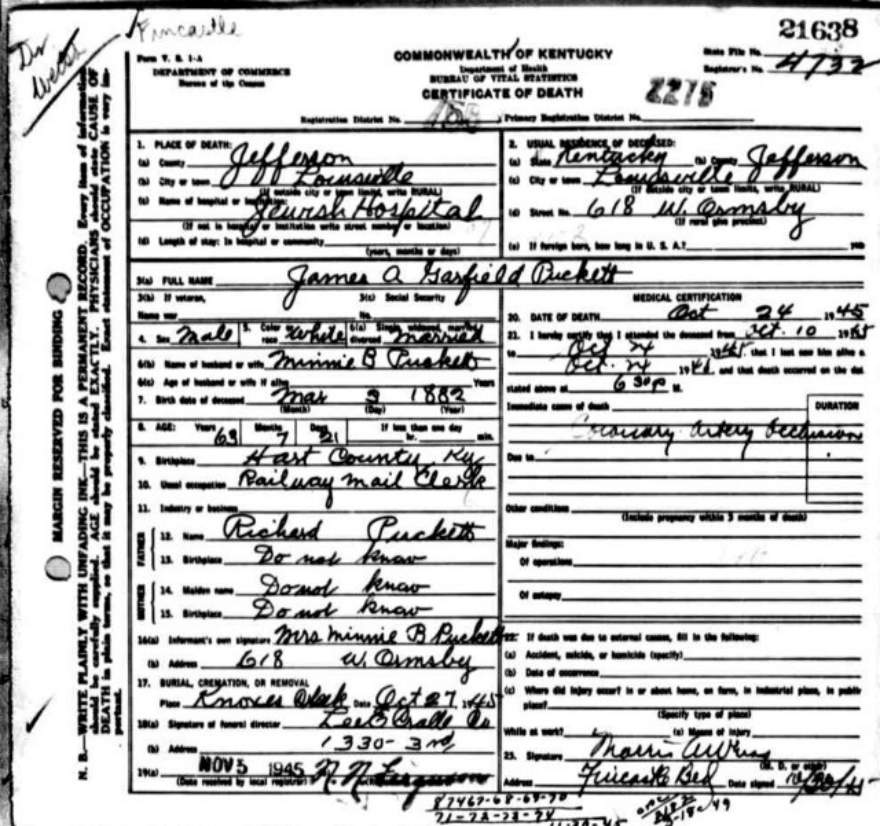 Fincastle
21638
Dr
Form V. S. 1-A
DEPARTMENT OF COMMERCE
Bureau of the Census
COMMONWEALTH OF KENTUCKY
Department of Health
BUREAU OF VITAL STATISTICS
CERTIFICATE OF DEATH
State File No.
Registrar's No. 4732
2275
Registration District No. Primary Registration District No.
MARGIN RESERVED FOR BINDING
N. B.—WRITE PLAINLY WITH UNFADING INK—THIS IS A PERMANENT RECORD. Every item of information
should be carefully supplied. AGE should be stated EXACTLY. PHYSICIANS should state CAUSE OF
DEATH in plain terms, so that it may be properly classified. Exact statement of OCCUPATION is very im-
portant.
1. PLACE OF DEATH:
(a) County Jefferson
(b) City or town Louisville
(If outside city or town limits, write RURAL)
(c) Name of hospital or institution: Jewish Hospital
(If not in hospital or institution write street number or location)
(d) Length of stay: In hospital or community
(years, months or days)
2. USUAL RESIDENCE OF DECEASED:
(a) State Kentucky (b) County Jefferson
(c) City or town Louisville
(If outside city or town limits, write RURAL)
(d) Street No. 618 W. Ormsby
(If rural give precinct)
(e) If foreign born, how long in U. S. A.?
3(a) FULL NAME James A Garfield Puckett
3(b) If veteran,
Name war
3(c) Social Security
No.
4. Sex Male 5. Color or race White 6(a) Single, widowed, married, divorced married
6(b) Name of husband or wife Minnie B Puckett
6(c) Age of husband or wife if alive Years
7. Birth date of deceased Mar 3 1882
(Month) (Day) (Year)
8. AGE: Years 63 Months 7 Days 21 If less than one day
hr. min.
9. Birthplace Hart County Ky
10. Usual occupation Railway Mail Clerk
11. Industry or business
FATHER
12. Name Richard Puckett
13. Birthplace Do not know
MOTHER
14. Maiden name Do not know
15. Birthplace Do not know
16(a) Informant's own signature Mrs Minnie B Puckett
(b) Address 618 W. Ormsby
17. BURIAL, CREMATION, OR REMOVAL
Place Knoxes Date Oct 27 1945
18(a) Signature of funeral director Lee E Cralle Co
(b) Address 1330-3rd
19(a) NOV 5 1945
(Date received by local registrar)
MEDICAL CERTIFICATION
20. DATE OF DEATH Oct 24 1945
21. I hereby certify that I attended the deceased from Oct. 10 1945
to Oct 24 1945, that I last saw him alive
Oct. 24 and that death occurred on the date
stated above at 6 30 P M.
Immediate cause of death
DURATION
Coronary Artery Occlusion
Due to
Other conditions
(Include pregnancy within 3 months of death)
Major findings:
Of operations
Of autopsy
22. If death was due to external causes, fill in the following:
(a) Accident, suicide, or homicide (specify)
(b) Date of occurrence
(c) Where did injury occur? in or about home, on farm, in industrial place, in public
place?
(Specify type of place)
While at work? (e) Means of injury
23. Signature Morris
(M. D. or other)
Address Date signed
87467-68-69-70
71-72-73-74